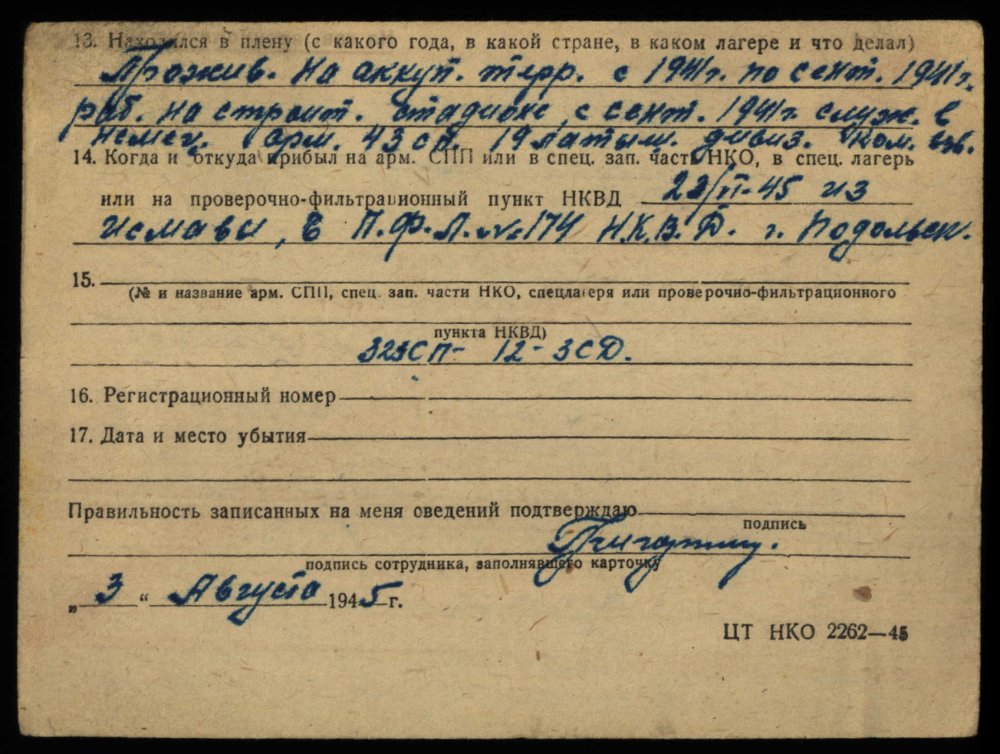 13. Находился в плену (с какого года, в какой стране, в каком лагере и что делал)
Прожив. на аккуп. терр. с 1941 г. по сент. 1941 г.
раб. на строит. стадиона, с сент. 1941 г. служ. в
немец. арм. 43 сп. 19 латыш. дивиз. ком.
14. Когда и откуда прибыл на арм. СПП или в спец. зап. часть НКО, в спец. лагерь
или на проверочно-фильтрационный пункт НКВД 23/VI-45 из
в П.Ф.Л. № 174 Н.К.В.Д. г. Подольск.
15.
(№ и название арм. СПП, спец. зап. части НКО, спецлагеря или проверочно-фильтрационного
пункта НКВД)
323СП- 12- ЗСД.
16. Регистрационный номер
17. Дата и место убытия
Правильность записанных на меня сведений подтверждаю
подпись
подпись сотрудника, заполнявшего карточку
„ 3 “ Августа 1945 г.
ЦТ НКО 2262—45